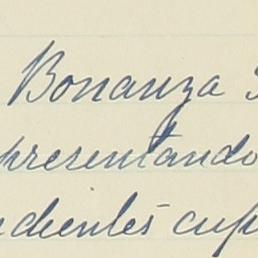 Bonanza
presentando
ndientes cup